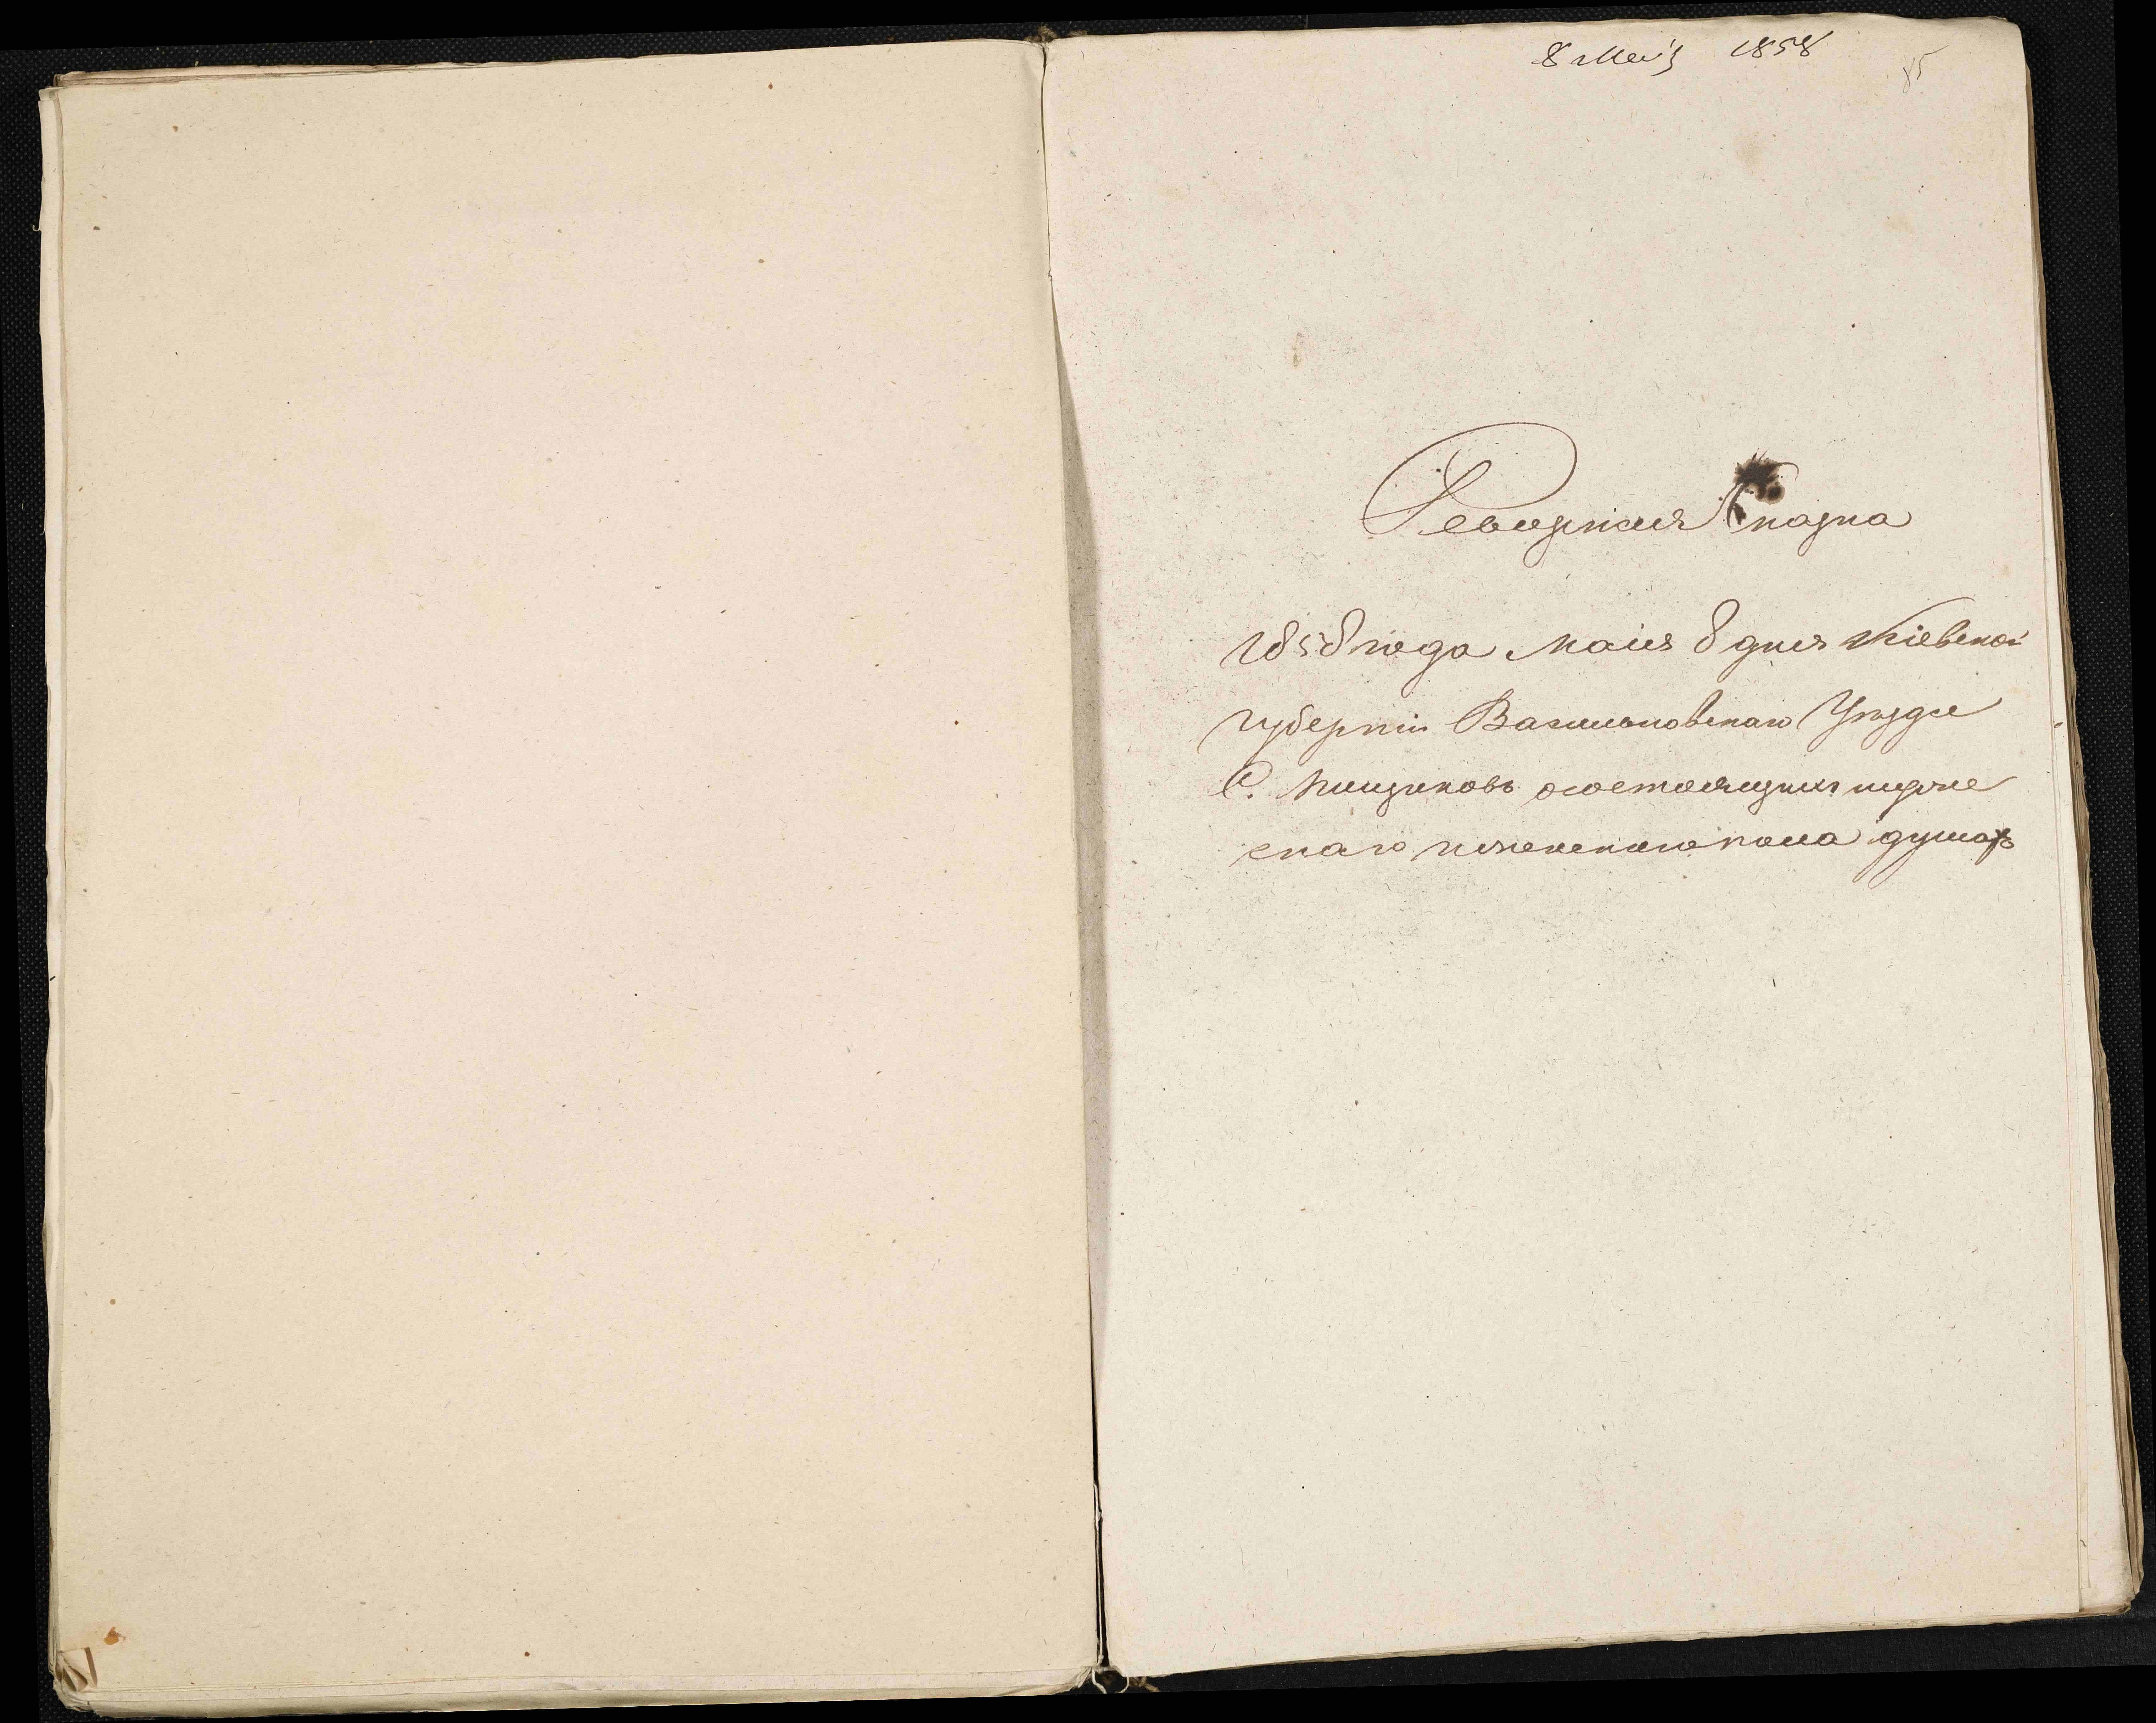 8 Мая 1858
85
Ревизкая Сказка
1858 года Маия 8 дня Кіевской
губерніи Васильковскаго Уезда
С. Пищиковъ осостоящихъ мужие
скаго иженскаго пола душахъ